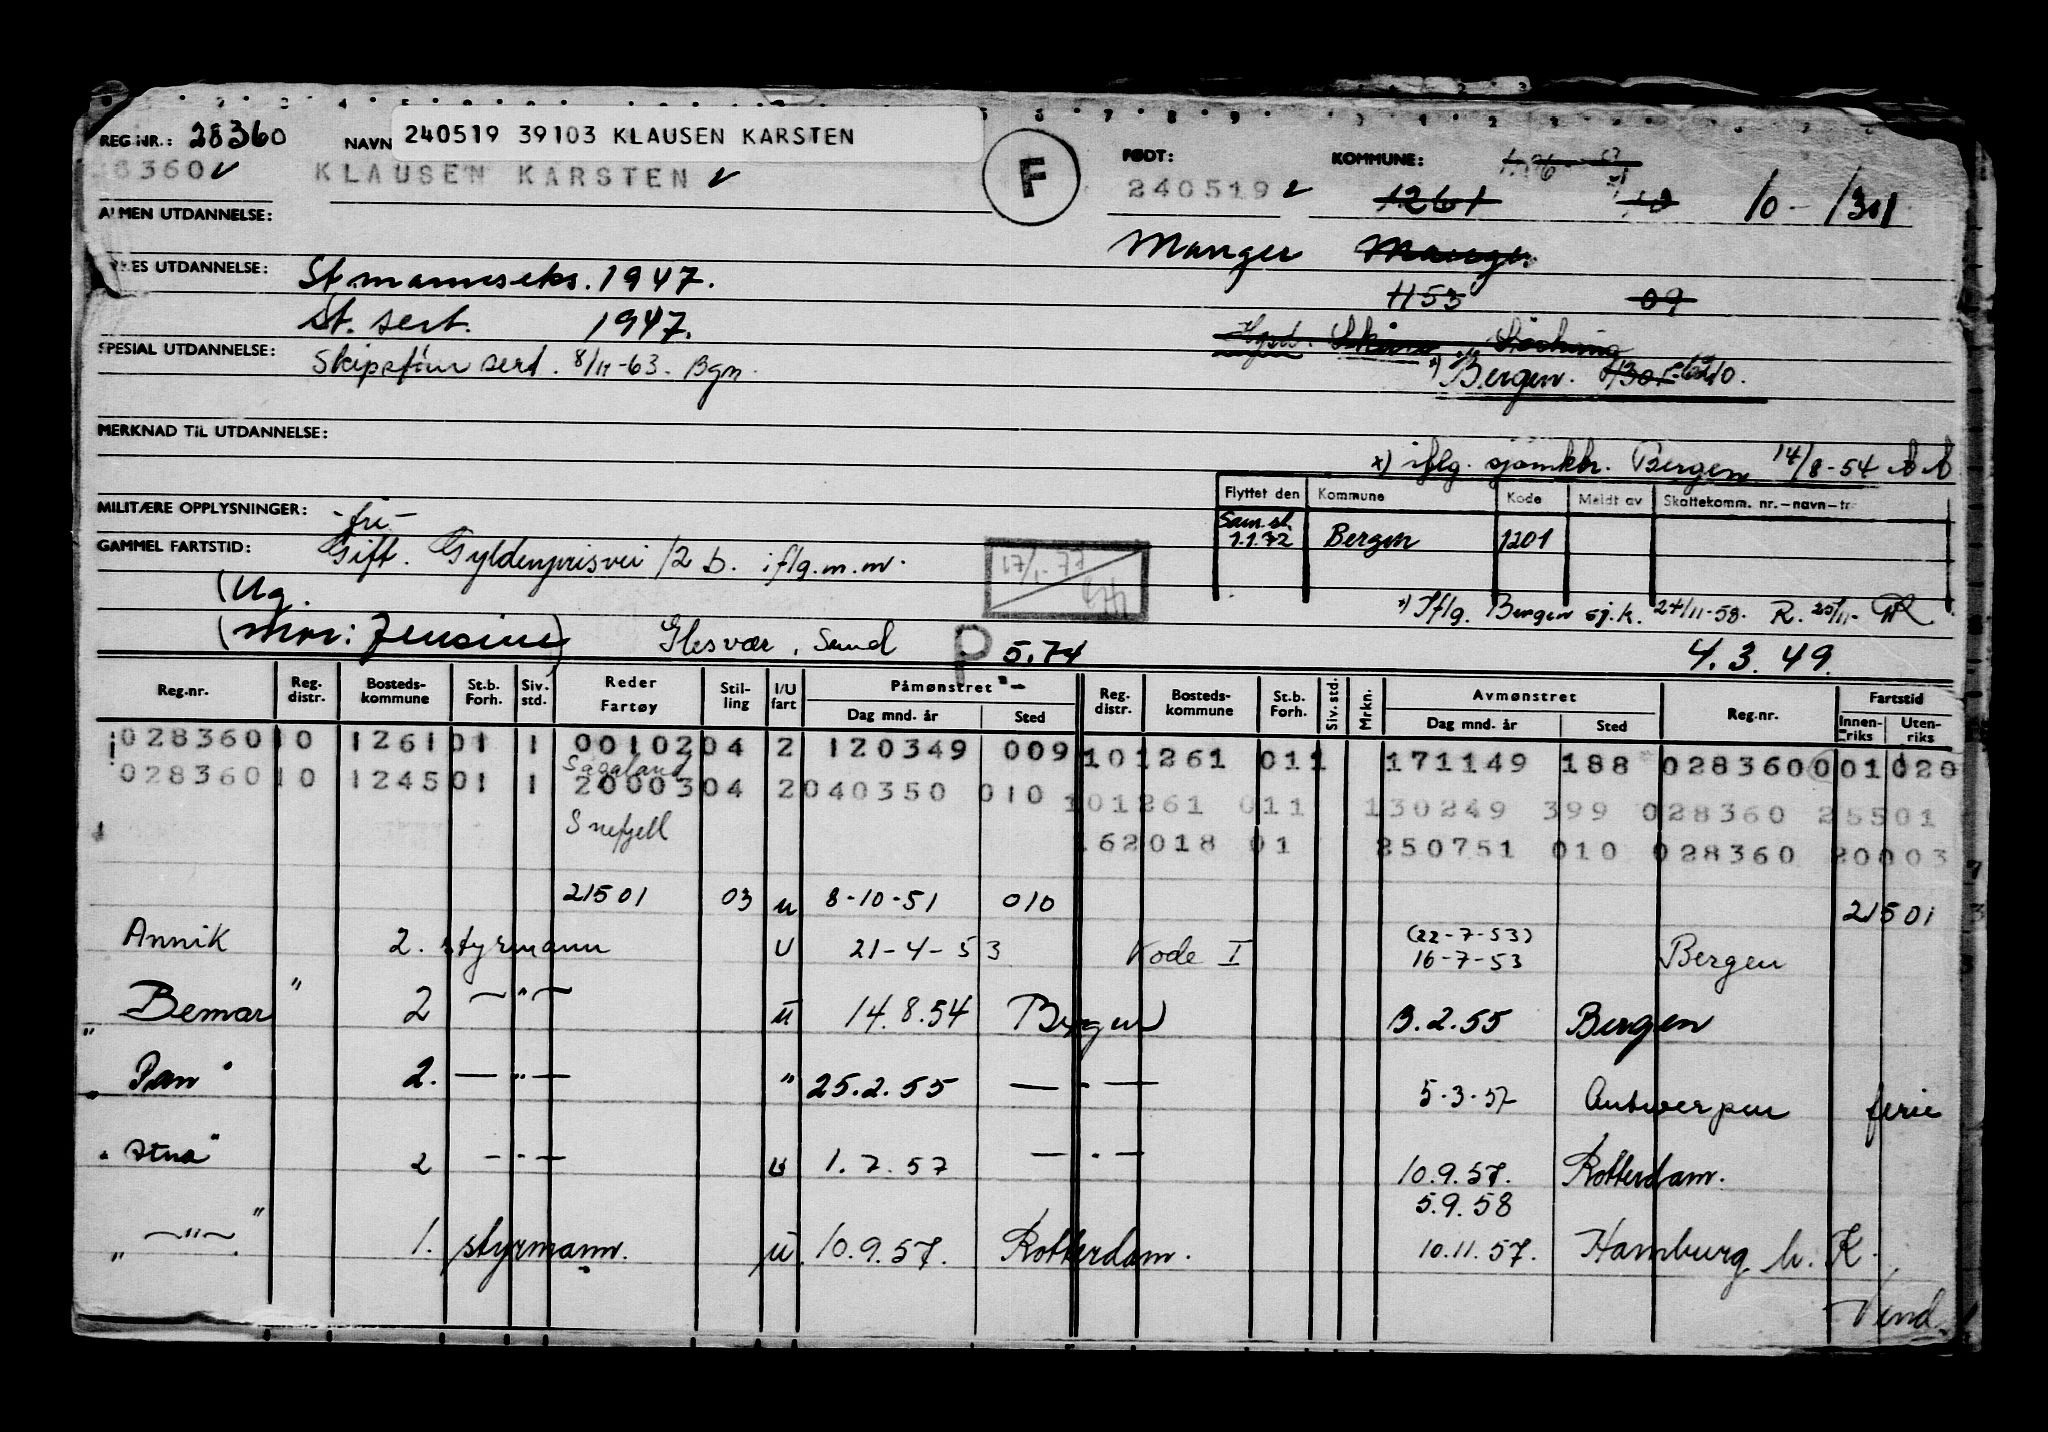 REG.NR.: 28360 NAVN 240519 39103 KLAUSEN KARSTEN F FØDT: KOMMUNE:
8360 KLAUSEN KARSTEN 240519 1261 10 - 1301
ALMEN UTDANNELSE:
Manger Manger
YRKES UTDANNELSE: St.mannseks. 1947.
1153 09
St. sert. 1947.
SPESIAL UTDANNELSE: Skipsfører sert. 8/11-63. Bgn.
x) Bergen. 1301
MERKNAD TIL UTDANNELSE:
x) iflg. sjømktr. Bergen 14/8-54
MILITÆRE OPPLYSNINGER: -fri-
Flyttet den Kommune Kode Meldt av Skattekomm. nr.-navn-tr
Sam.sl. 1.1.72 Bergen 1201
GAMMEL FARTSTID: Gift. Gyldenprisvei 12 b. iflg.m.m.
17/1-77
(Ug.
x) Iflg. Bergen sj.k. 24/11-58. R. 25/11-
(Mor: Jensine) Glesvær, Sund P 5.74 4.3.49.
Reg.nr. Reg. distr. Bosteds-kommune St.b. Forh. Siv. std. Reder Fartøy Stil-ling I/U fart Påmønstret Dag mnd. år Sted Reg. distr. Bosteds-kommune St.b. Forh. Siv. std. Mrkn. Avmønstret Dag mnd. år Sted Reg.nr. Fartstid Innen-riks Uten-riks
028360 10 1261 01 1 00102 04 2 120349 009 101261 011 171149 188 028360 001 020
Sagaland
028360 10 1245 01 1 20003 04 2 040350 010 101261 011 130249 399 028360 25501
Snefjell
162018 01 250751 010 028360 20003
21501 03 u 8-10-51 010 21501
Annik 2. styrmann U 21-4-53 Kode I (22-7-53) 16-7-53 Bergen
" Bemar " 2 — " — u 14.8.54 Bergen 3.2.55 Bergen
" Pan " 2. — " — " 25.2.55 — " — 5-3-57 Antwerpen ferie
" Stua " 2 — " — u 1.7.57 — " — 10.9.57. Rotterdam.
5.9.58
" — " — " 1. styrmann. u. 10.9.57. Rotterdam. 10.11.57. Hamburg h. K.
Vend.